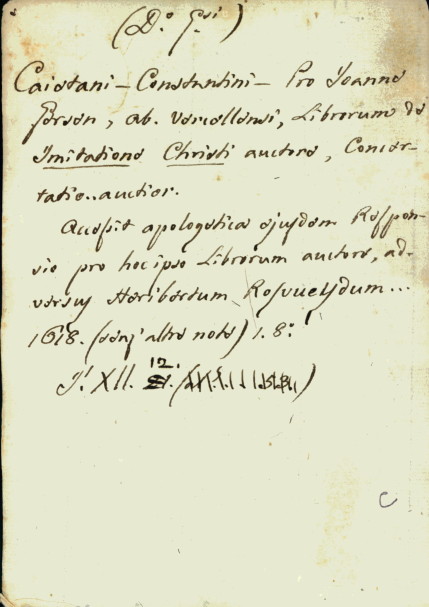 (D.º G.si)
Caietani – Constantini – Pro Joanne
Gersen, ab. Vercellensi, Librorum de
Imitatione Christi auctore, Concer-
tatio.. auctior.
Accessit apologetica ejusdem Respon-
sio pro hoc ipso Librorum auctore, ad-
versus Heribertum Rosvueydum...
1618. (senz' altre note) 1. 8.º
J! XII. 12.
C